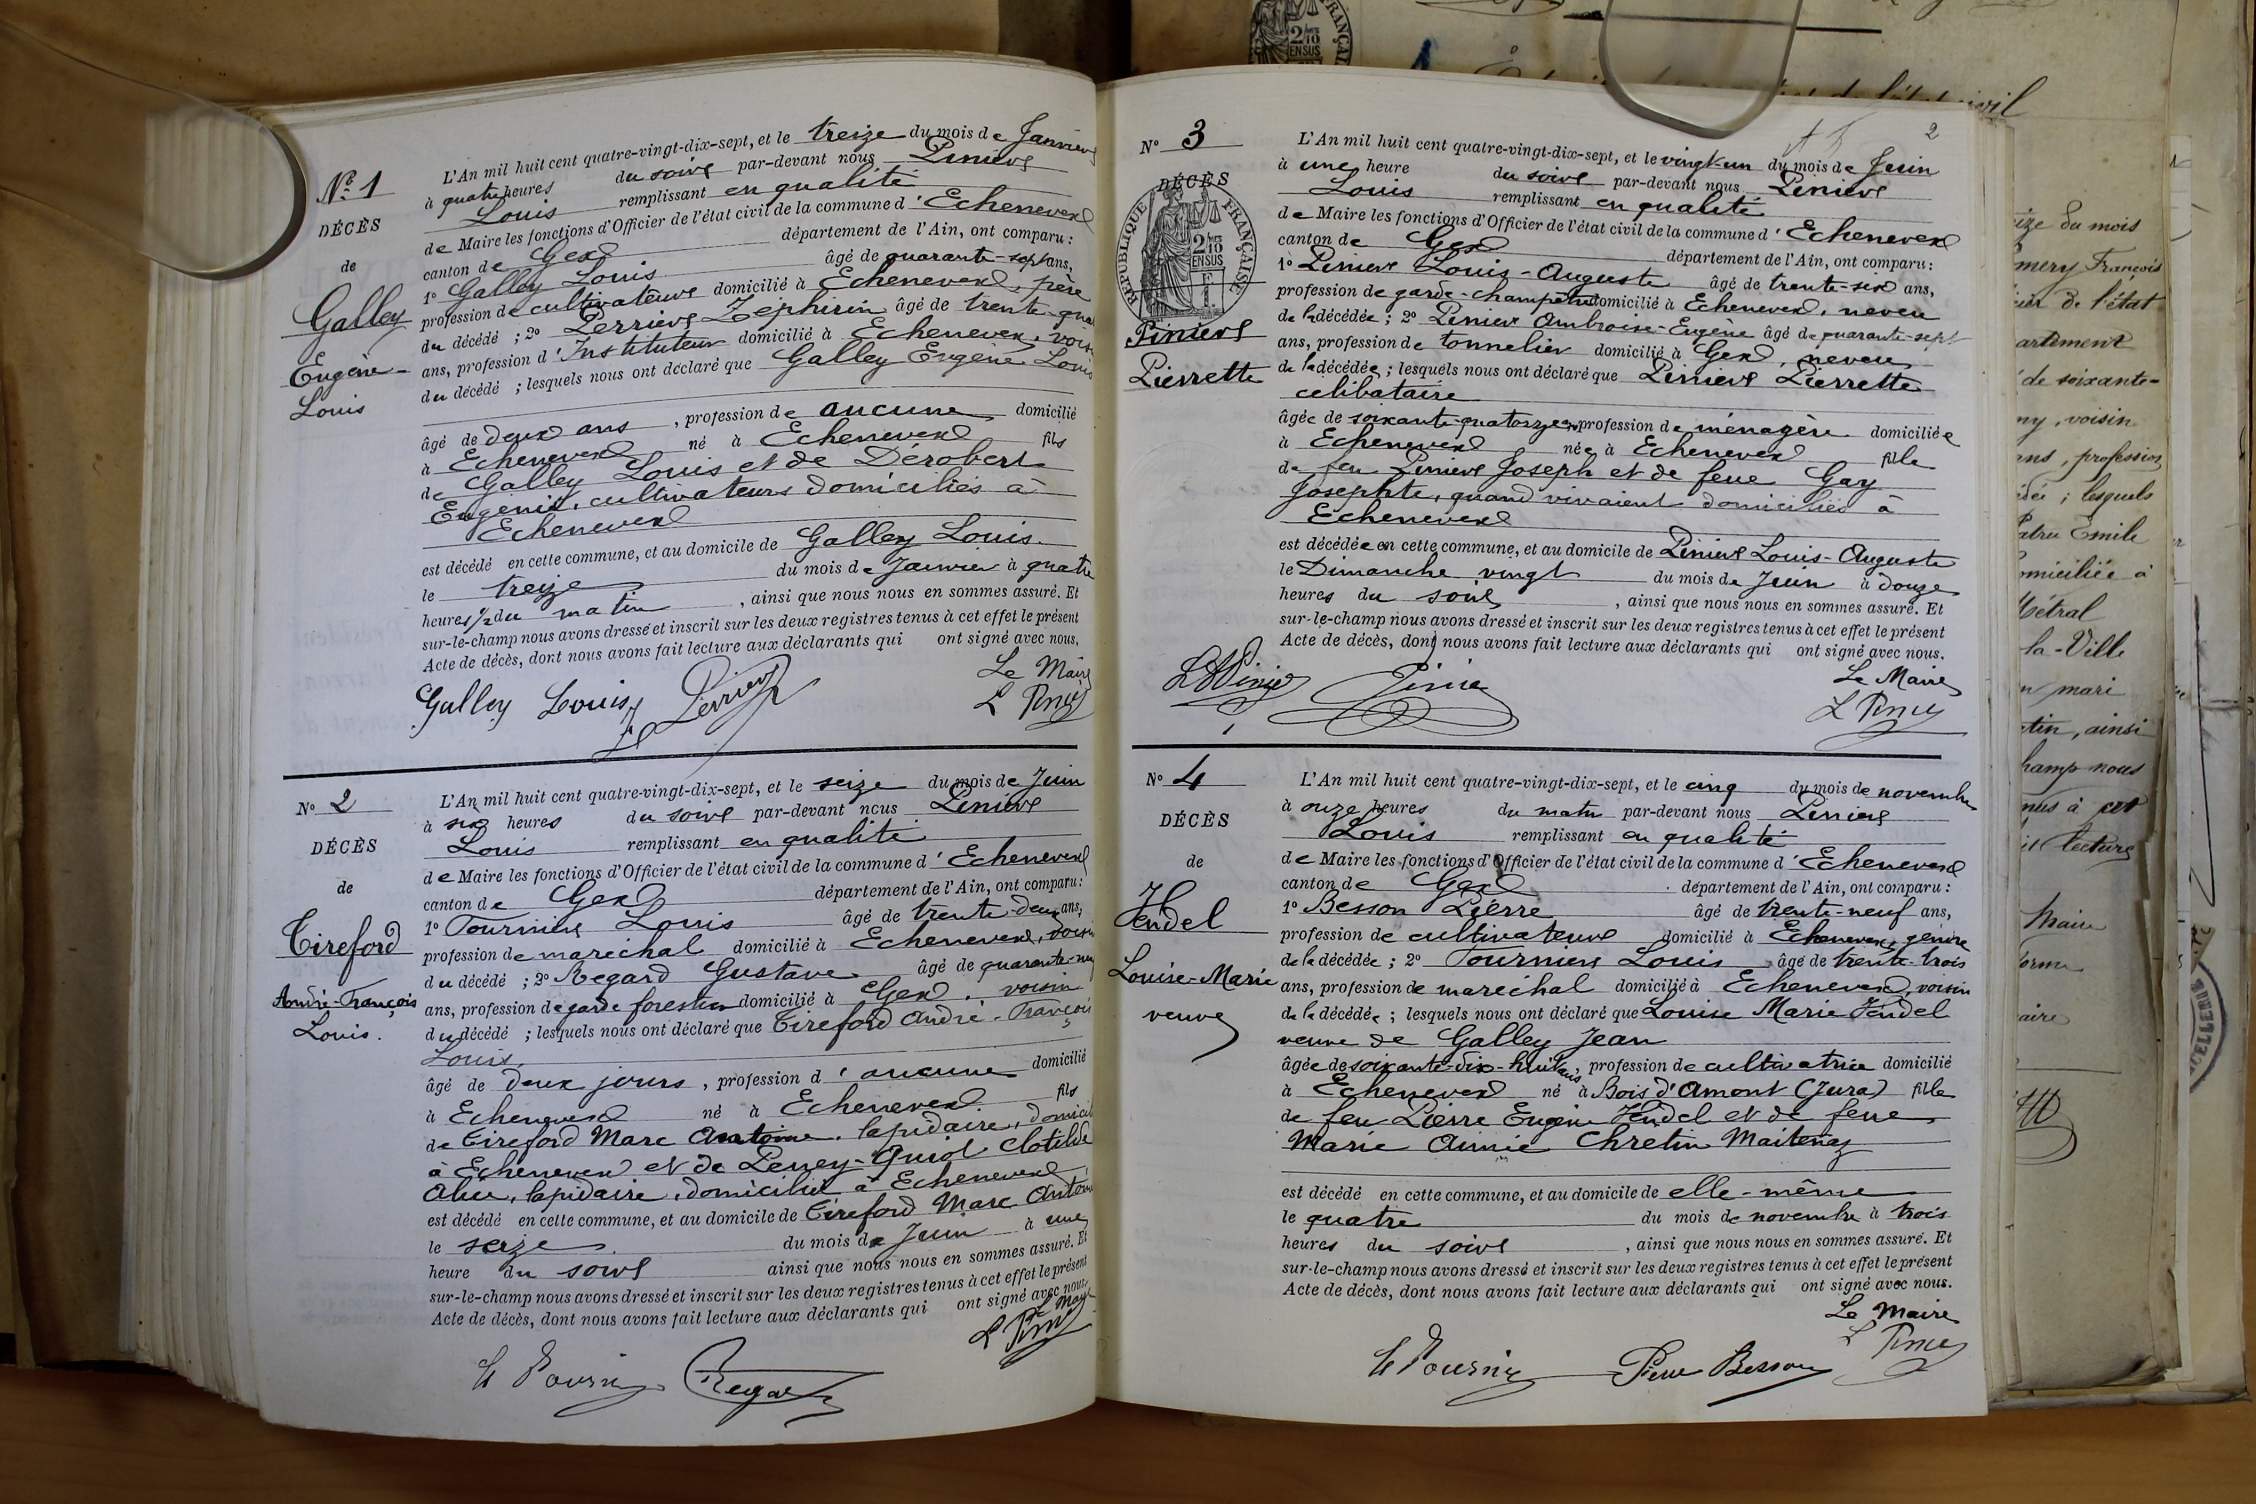 Nº 1
DÉCÈS
de
Galley
Eugène-
Louis
L'An mil huit cent quatre-vingt-dix-sept, et le treize du mois de Janvier
à quatre heures du soir par-devant nous Pinier
Louis remplissant en qualité
de Maire les fonctions d'Officier de l'état civil de la commune d'Echenevex
canton de Gex département de l'Ain, ont comparu :
1º Galley Louis âgé de quarante-sept ans,
profession de cultivateur domicilié à Echenevex, père
du décédé ; 2º Perrier Zéphirin âgé de trente-
ans, profession d'Instituteur domicilié à Echenevex,
du décédé ; lesquels nous ont déclaré que Galley Eugène Louis
âgé de deux ans , profession de aucune domicilié
à Echenevex né à Echenevex fils
de Galley Louis et de Dérobert
Eugénie, cultivateurs domiciliés à
Echenevex
est décédé en cette commune, et au domicile de Galley Louis.
le treize du mois de Janvier à quatre
heures ½ du matin , ainsi que nous nous en sommes assuré. Et
sur-le-champ nous avons dressé et inscrit sur les deux registres tenus à cet effet le présent
Acte de décès, dont nous avons fait lecture aux déclarants qui ont signé avec nous.
Le Maire
Galley Louis Z Perrier L Pinier
Nº 2
DÉCÈS
de
Tireford
André-François
Louis.
L'An mil huit cent quatre-vingt-dix-sept, et le seize du mois de Juin
à six heures du soir par-devant nous Pinier
Louis remplissant en qualité
de Maire les fonctions d'Officier de l'état civil de la commune d'Echenevex
canton de Gex département de l'Ain, ont comparu :
1º Tournier Louis âgé de trente-deux ans,
profession de maréchal domicilié à Echenevex, voisin
du décédé ; 2º Regard Gustave âgé de quarante-
ans, profession de garde forestier domicilié à Gex, voisin
du décédé ; lesquels nous ont déclaré que Tireford André-François
Louis
âgé de deux jours , profession d'aucune domicilié
à Echenevex né à Echenevex fils
de Tireford Marc Antoine, lapidaire, domicil
à Echenevex et de Perrey-Guiot Clotilde
Alice, lapidaire, domiciliée à Echenevex
est décédé en cette commune, et au domicile de Tireford Marc Antoine
le seize du mois de Juin à une
heure du soir ainsi que nous nous en sommes assuré. Et
sur-le-champ nous avons dressé et inscrit sur les deux registres tenus à cet effet le présent
Acte de décès, dont nous avons fait lecture aux déclarants qui ont signé avec nous.
Le Maire
L Pinier
Ls Tournier Regard
2
Nº 3
DÉCÈS
RÉPUBLIQUE FRANÇAISE
2/10 EN SUS
Piniere
Pierrette
L'An mil huit cent quatre-vingt-dix-sept, et le vingt-un du mois de Juin
à une heure du soir par-devant nous Pinier
Louis remplissant en qualité
de Maire les fonctions d'Officier de l'état civil de la commune d'Echenevex
canton de Gex département de l'Ain, ont comparu :
1º Pinier Louis-Auguste âgé de trente-six ans,
profession de garde-champêtre domicilié à Echenevex, neveu
de la décédée ; 2º Pinier Ambroise-Eugène âgé de quarante-sept
ans, profession de tonnelier domicilié à Gex, neveu
de la décédée ; lesquels nous ont déclaré que Pinier Pierrette
célibataire
âgée de soixante-quatorze ans, profession de ménagère domiciliée
à Echenevex née à Echenevex fille
de feu Pinier Joseph et de feue Gay
Josephte, quand vivaient domiciliés à
Echenevex
est décédée en cette commune, et au domicile de Pinier Louis-Auguste
le Dimanche vingt du mois de Juin à douze
heures du soir , ainsi que nous nous en sommes assuré. Et
sur-le-champ nous avons dressé et inscrit sur les deux registres tenus à cet effet le présent
Acte de décès, dont nous avons fait lecture aux déclarants qui ont signé avec nous.
Le Maire
L A Pinier Pinier L Pinier
Nº 4
DÉCÈS
de
Hendel
Louise-Marie
veuve
L'An mil huit cent quatre-vingt-dix-sept, et le cinq du mois de novembre
à onze heures du matin par-devant nous Pinier
Louis remplissant en qualité
de Maire les fonctions d'Officier de l'état civil de la commune d'Echenevex
canton de Gex département de l'Ain, ont comparu :
1º Besson Pierre âgé de trente-neuf ans,
profession de cultivateur domicilié à Echenevex, gendre
de la décédée ; 2º Tournier Louis âgé de trente-trois
ans, profession de maréchal domicilié à Echenevex, voisin
de la décédée ; lesquels nous ont déclaré que Louise Marie Hendel
veuve de Galley Jean
âgée de soixante-dix-huit ans, profession de cultivatrice domicilié
à Echenevex né à Bois d'Amont (Jura) fille
de feu Pierre Eugène Hendel et de feue
Marie Aimée Chretin Maitenaz
est décédé en cette commune, et au domicile de elle-même
le quatre du mois de novembre à trois
heures du soir , ainsi que nous nous en sommes assuré. Et
sur-le-champ nous avons dressé et inscrit sur les deux registres tenus à cet effet le présent
Acte de décès, dont nous avons fait lecture aux déclarants qui ont signé avec nous.
Le Maire
L Pinier
Ls Tournier Pierre Besson
état civil
du mois
François
de l'état
artement
de soixante-
ny, voisin
ans, profession
dée ; lesquels
Patru Emile
omiciliée à
Métral
la-Ville
n mari
tin, ainsi
hamp nous
nus à cet
it lecture
Maire
forme
aire